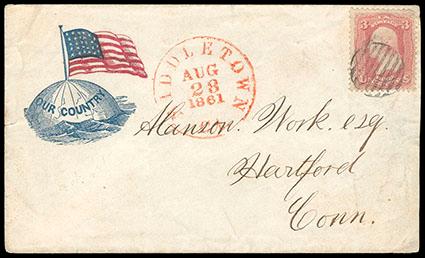 3 3
OUR COUNTRY
MIDDLETOWN
AUG
28
1861
Alanson. Work. esq.
Hartford
Conn.